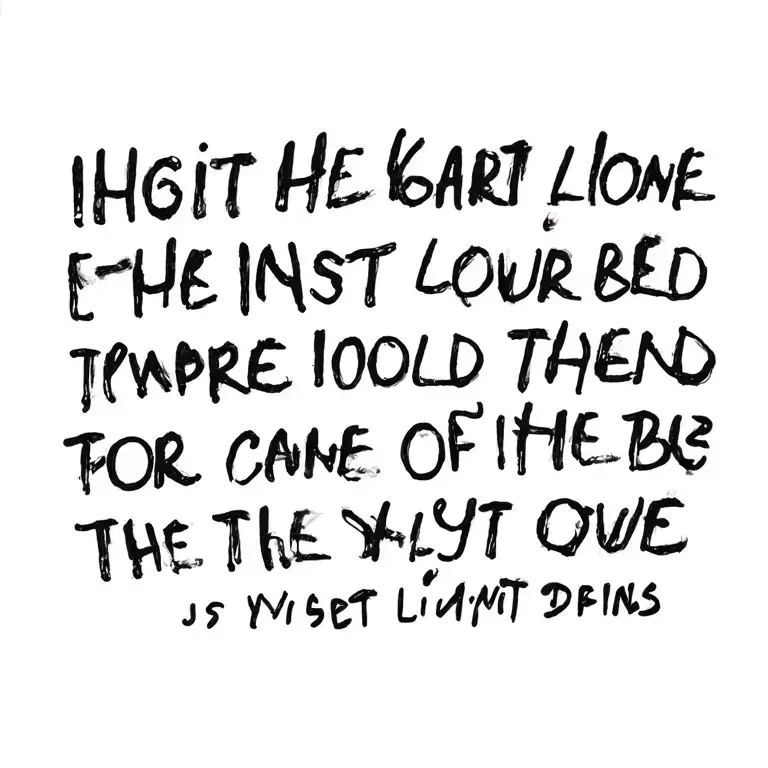 IHGiT HE GART LIONE
E-HE INST LOUR BED
TPWPRE IOOLD THEND
FOR CANE OF IHE
THE ThE OWE
JS YViSET DRINS